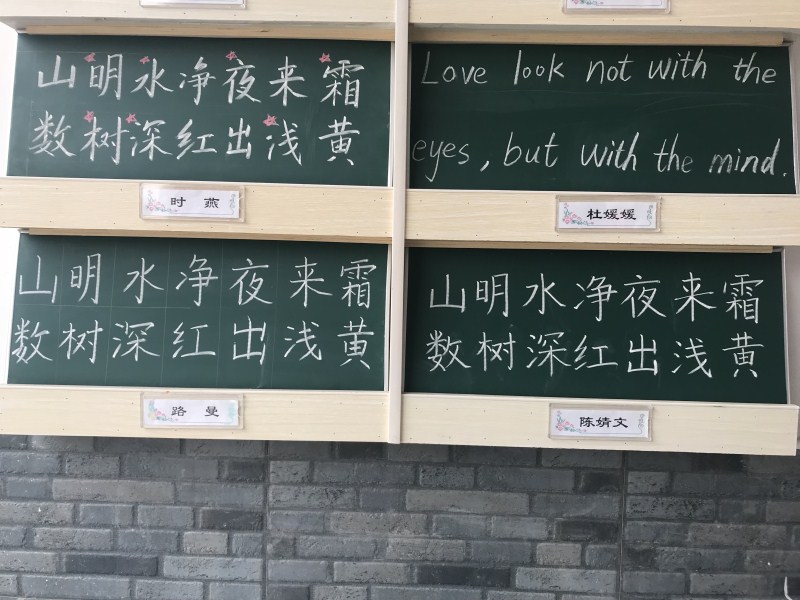 山明水净夜来霜
数树深红出浅黄
时 燕
Love look not with the
eyes, but with the mind.
杜媛媛
山明水净夜来霜
数树深红出浅黄
路 曼
山明水净夜来霜
数树深红出浅黄
陈婧文